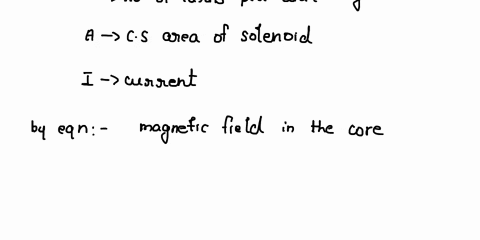 no of turns per
A → C.S area of solenoid
I → current
by eqn:- magnetic field in the core